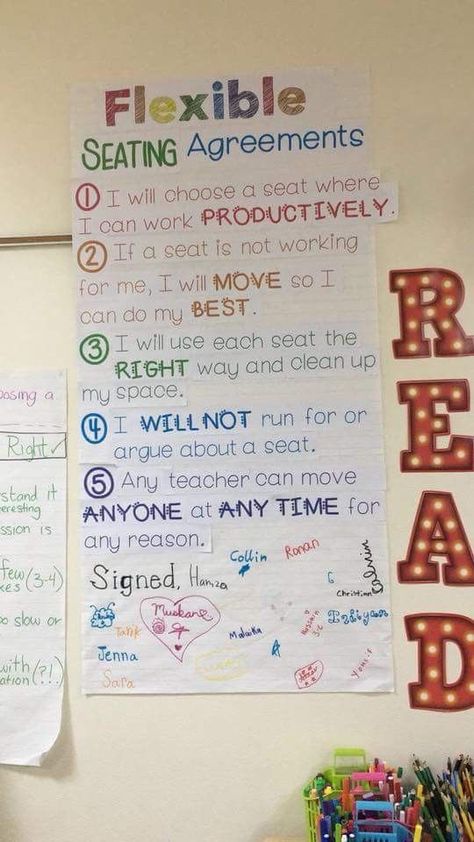 Flexible
SEATING Agreements
1 I will choose a seat where
I can work PRODUCTIVELY.
2 If a seat is not working
for me, I will MOVE so I
can do my BEST.
3 I will use each seat the
RIGHT way and clean up
my space.
4 I WILL NOT run for or
argue about a seat.
5 Any teacher can move
ANYONE at ANY TIME for
any reason.
Signed, Hamza
Collin
Ronan
Christian
Muskane
Tarik
Malaika
Jenna
Sara
READ
osing a
Right ✓
stand it
eresting
ssion is
few (3-4)
kes
oo slow or
with
ation (?!.)